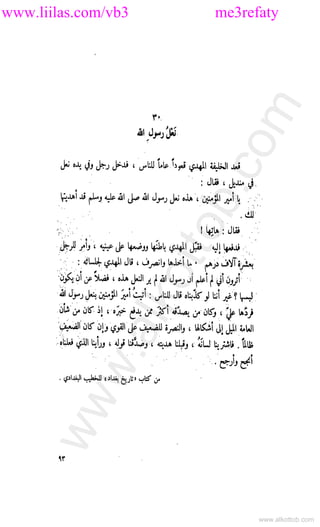 www.liilas.com/vb3 me3refaty
٣٠
نَعْلُ رسولِ الله
قعد الخليفة المهدي قعوداً عاماً للناس ، فدخل رجل وفي يده نعل
في منديل ، فقال :
يا أمير المؤمنين ، هذه نعل رسول الله صلى الله عليه وسلم قد أهديتها
لك .
فقال : هاتِها !
فدفعها إليه فقبّل المهدي باطنَها ووضعها على عينيه ، وأمر للرجل
بعشرة آلاف درهم . فلما أخذها وانصرف ، قال المهدي لجلسائه :
أترون أني لم أعلم أن رسول الله لم ير النعل هذه ، فضلاً عن أن يكون
لبسها ؟ غير أننا لو كذّبناه قال للناس : أتيتُ أمير المؤمنين بنعل رسول الله
فردّها عليّ ، وكان من يصدقه أكثر ممن يدفع خبره ، إذ كان من شأن
العامة الميل إلى أشكالها ، والنصرة للضعيف على القوي وإن كان الضعيف
ظالماً . فاشترينا لسانَه ، وقبلنا هديته ، وصدّقنا قوله ، ورأينا الذي فعلناه
أنجح وأرجح .
من كتاب «تاريخ بغداد» للخطيب البغدادي .
٩٣
www.alkottob.com